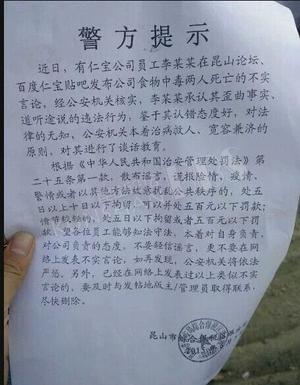 警方提示
近日，有仁宝公司员工李某某在昆山论坛、
百度仁宝贴吧发布公司食物中毒两人死亡的不实
言论，经公安机关核实，李某某承认其歪曲事实、
道听途说的违法行为，鉴于其认错态度好，对法
律的无知，公安机关本着治病救人、宽容兼济的
原则，对其进行了谈话教育。
根据《中华人民共和国治安管理处罚法》第
二十五条第一款，散布谣言，谎报险情、疫情、
警情或者以其他方法故意扰乱公共秩序的，处五
日以上十日以下拘留，可以并处五百元以下罚款；
情节较轻的，处五日以下拘留或者五百元以下罚
款。望各位员工能够知法守法，本着对自身负责、
对公司负责的态度，不要轻信谣言，更不要在网
络上发表不实言论，如再发现，公安机关将依法
严惩。另外，已经在网络上发表过以上类似不实
言论的，要及时与发帖地版主/管理员取得联系，
尽快删除。
昆山市